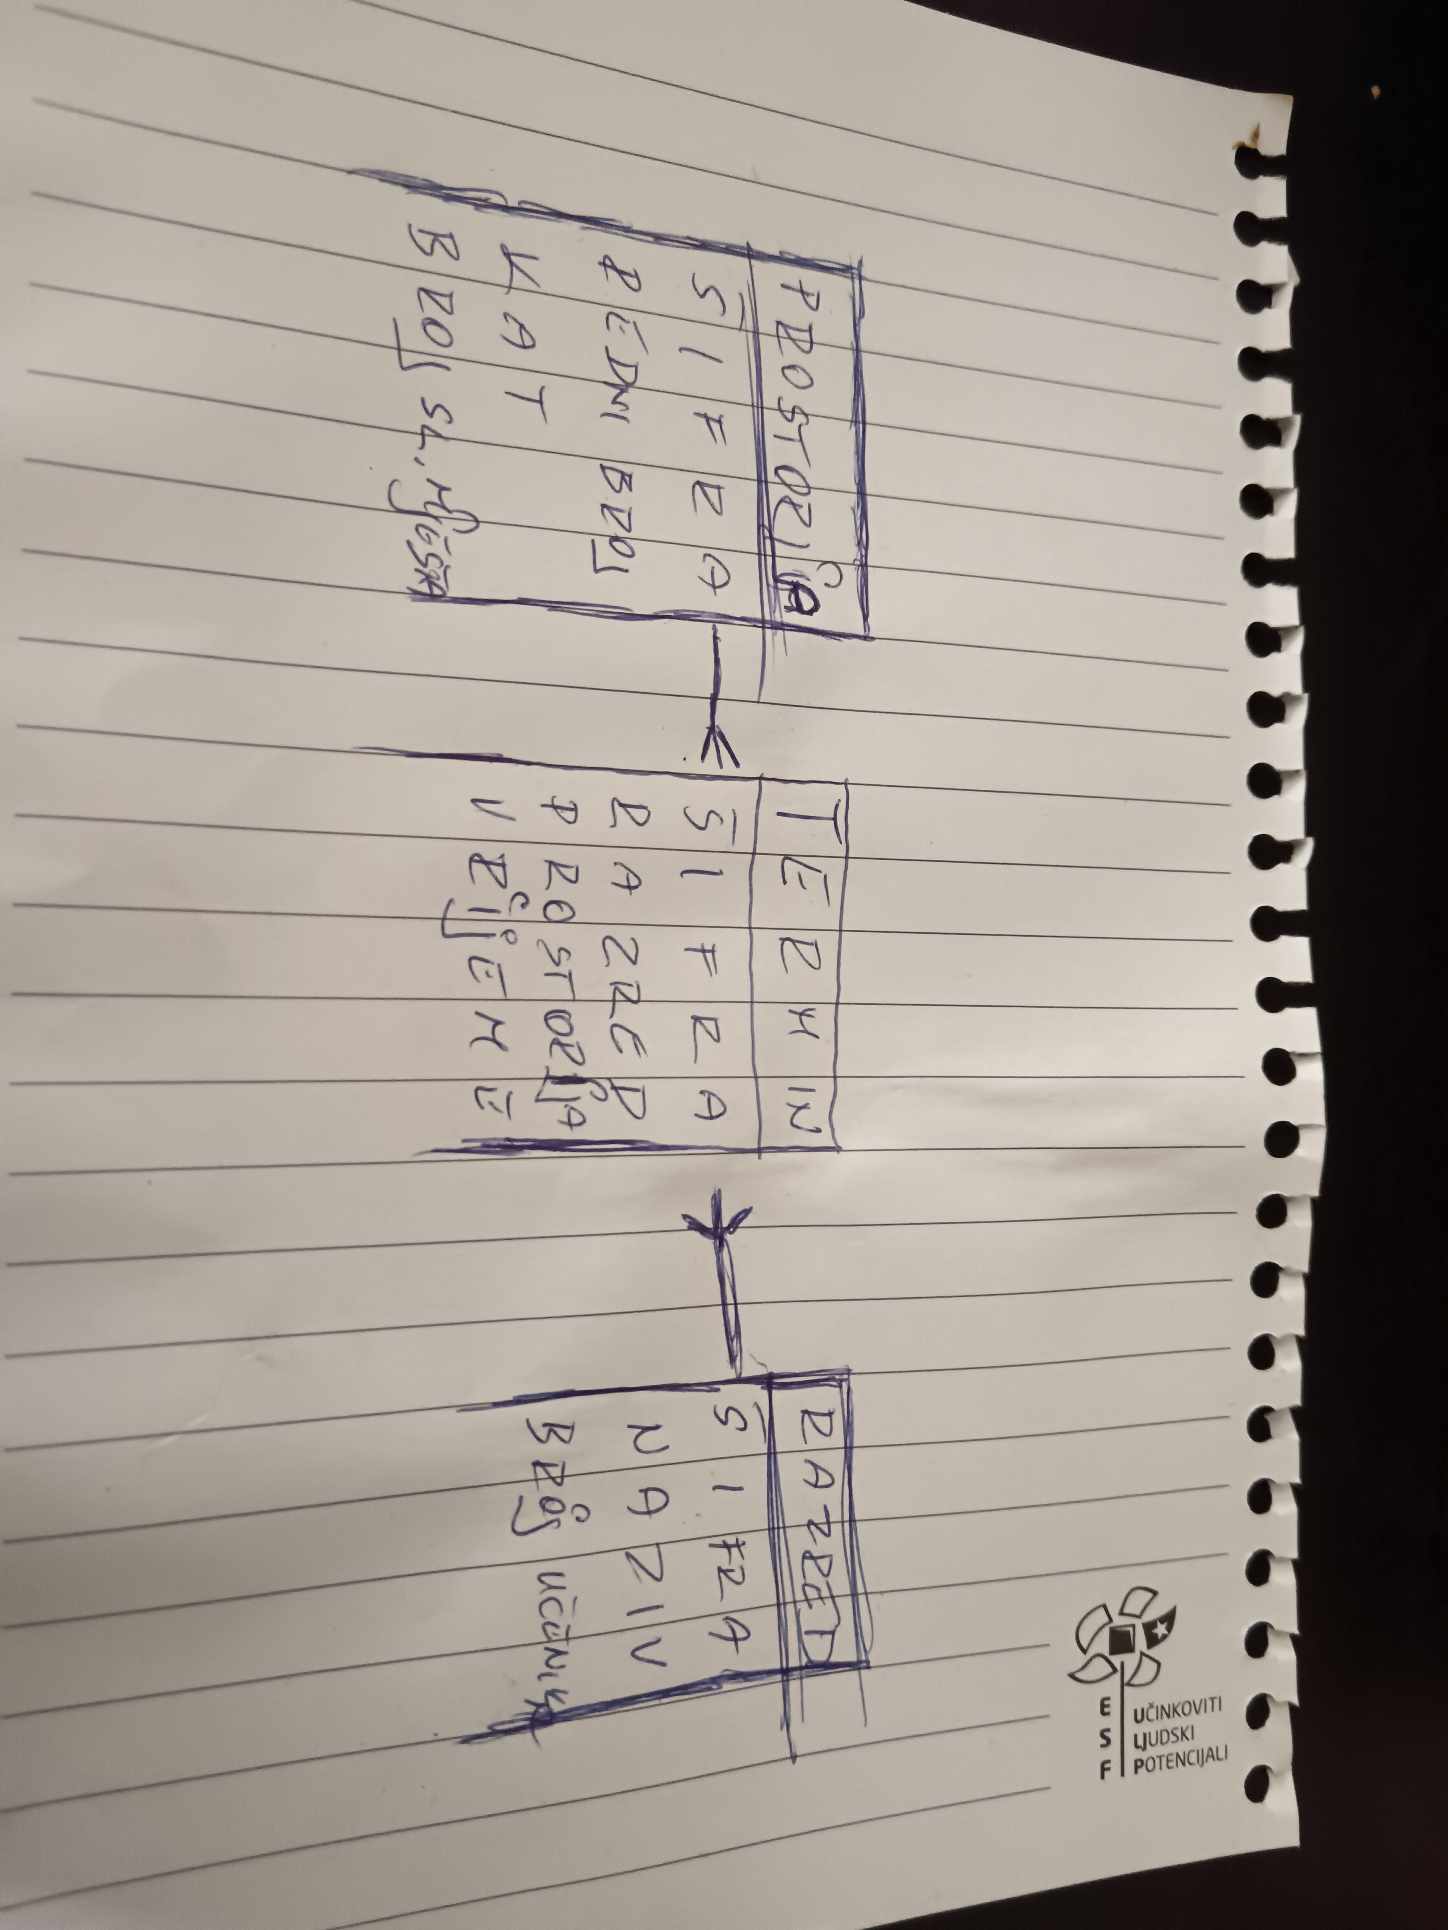 E UČINKOVITI
S LJUDSKI
F POTENCIJALI
PROSTORIJA
ŠIFRA
REDNI BROJ
KAT
BROJ SL. MJESTA
TERMIN
ŠIFRA
RAZRED
PROSTORIJA
VRIJEME
RAZRED
ŠIFRA
NAZIV
BROJ UČENIKA